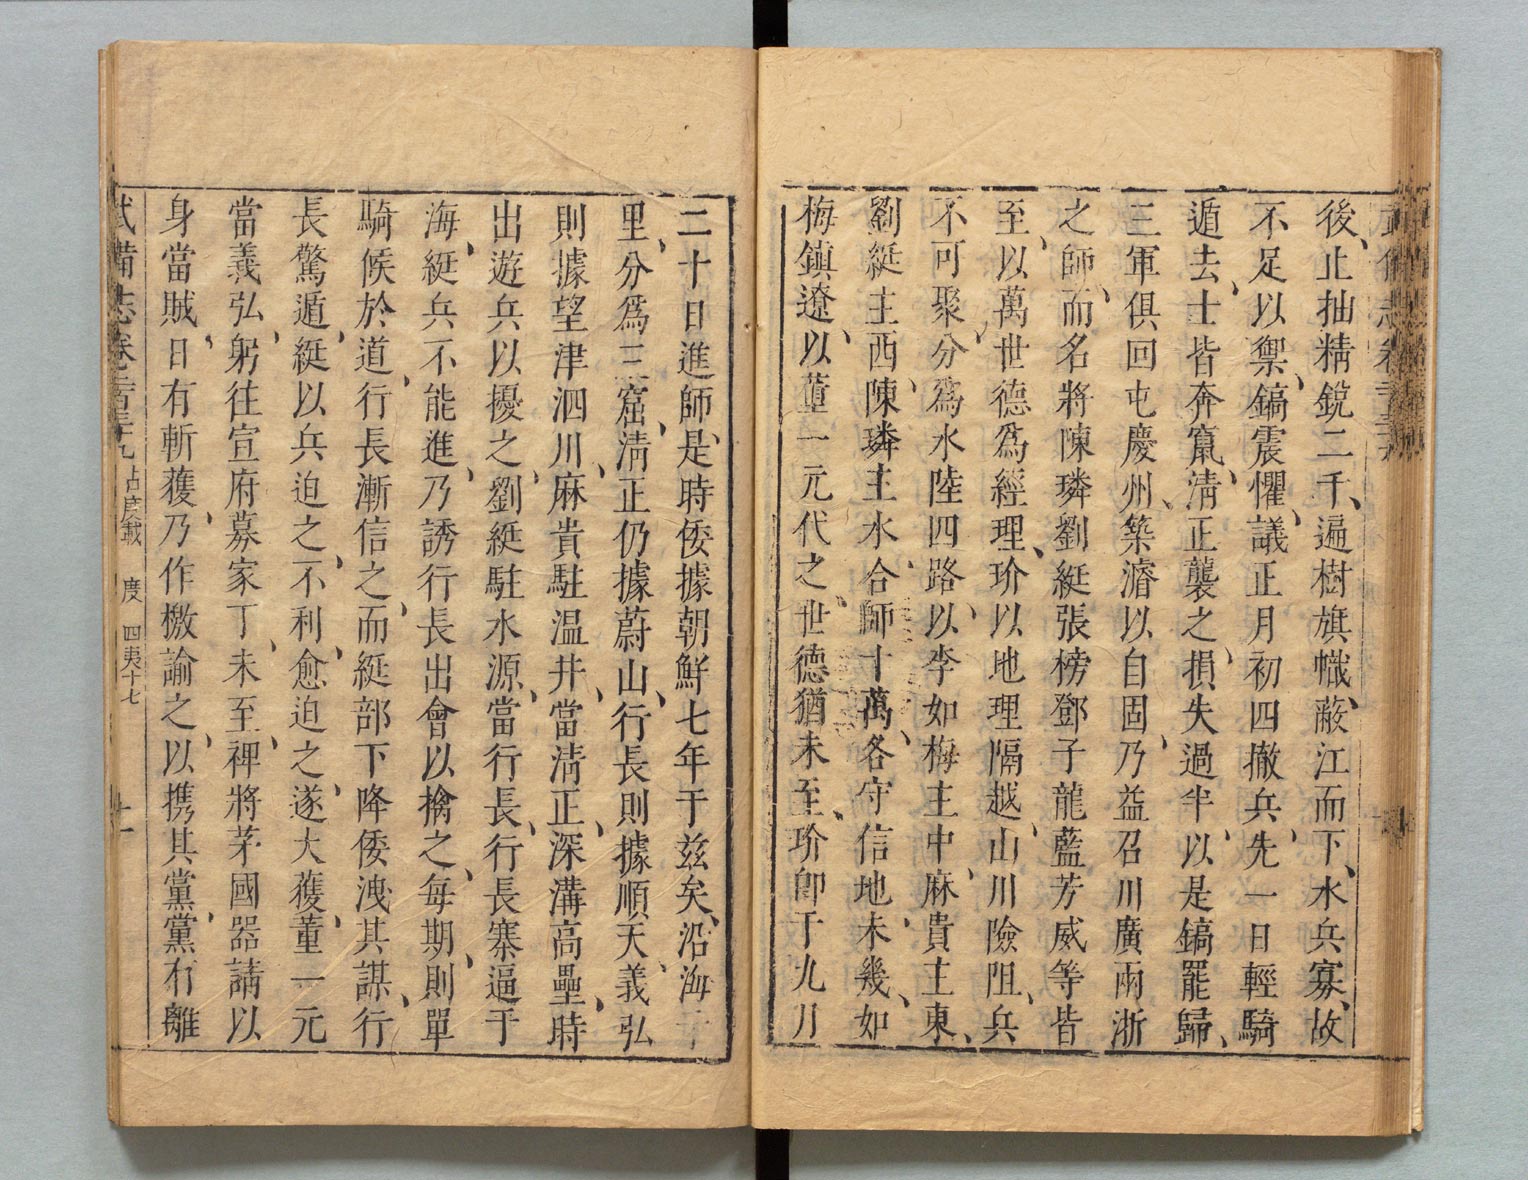 後、止抽精銳二千、遍樹旗幟、蔽江而下、水兵寡、故
不足以禦、鎬震懼、議正月初四撤兵、先一日輕騎
遁去、士皆奔竄、清正襲之、損失過半、以是鎬罷歸、
三軍俱回屯慶州、築濬以自固、乃益召川廣兩浙
之師、而名將陳璘劉綎張榜鄧子龍藍芳威等皆
至、以萬世德爲經理、玠以地理隔越、山川險阻、兵
不可聚、分爲水陸四路、以李如梅主中、麻貴主東、
劉綎主西、陳璘主水、合師十萬、各守信地、未幾、如
梅鎮遼、以董一元代之、世德猶未至、玠卽于九月
二十日進師、是時倭據朝鮮七年于兹矣、沿海千
里、分爲三窟、清正仍據蔚山、行長則據順天、義弘
則據望津泗川、麻貴駐温井、當清正、深溝高壘、時
出遊兵以擾之、劉綎駐水源、當行長、行長寨逼于
海、綎兵不能進、乃誘行長出會以擒之、每期、則單
騎候於道、行長漸信之、而綎部下降倭洩其謀、行
長驚遁、綎以兵迫之、不利、愈迫之、遂大獲、董一元
當義弘、躬往宣府募家丁、未至、裨將茅國器請以
身當賊、日有斬獲、乃作檄諭之、以携其黨、黨有離
武備志卷 占度載 度 四夷十七 十一